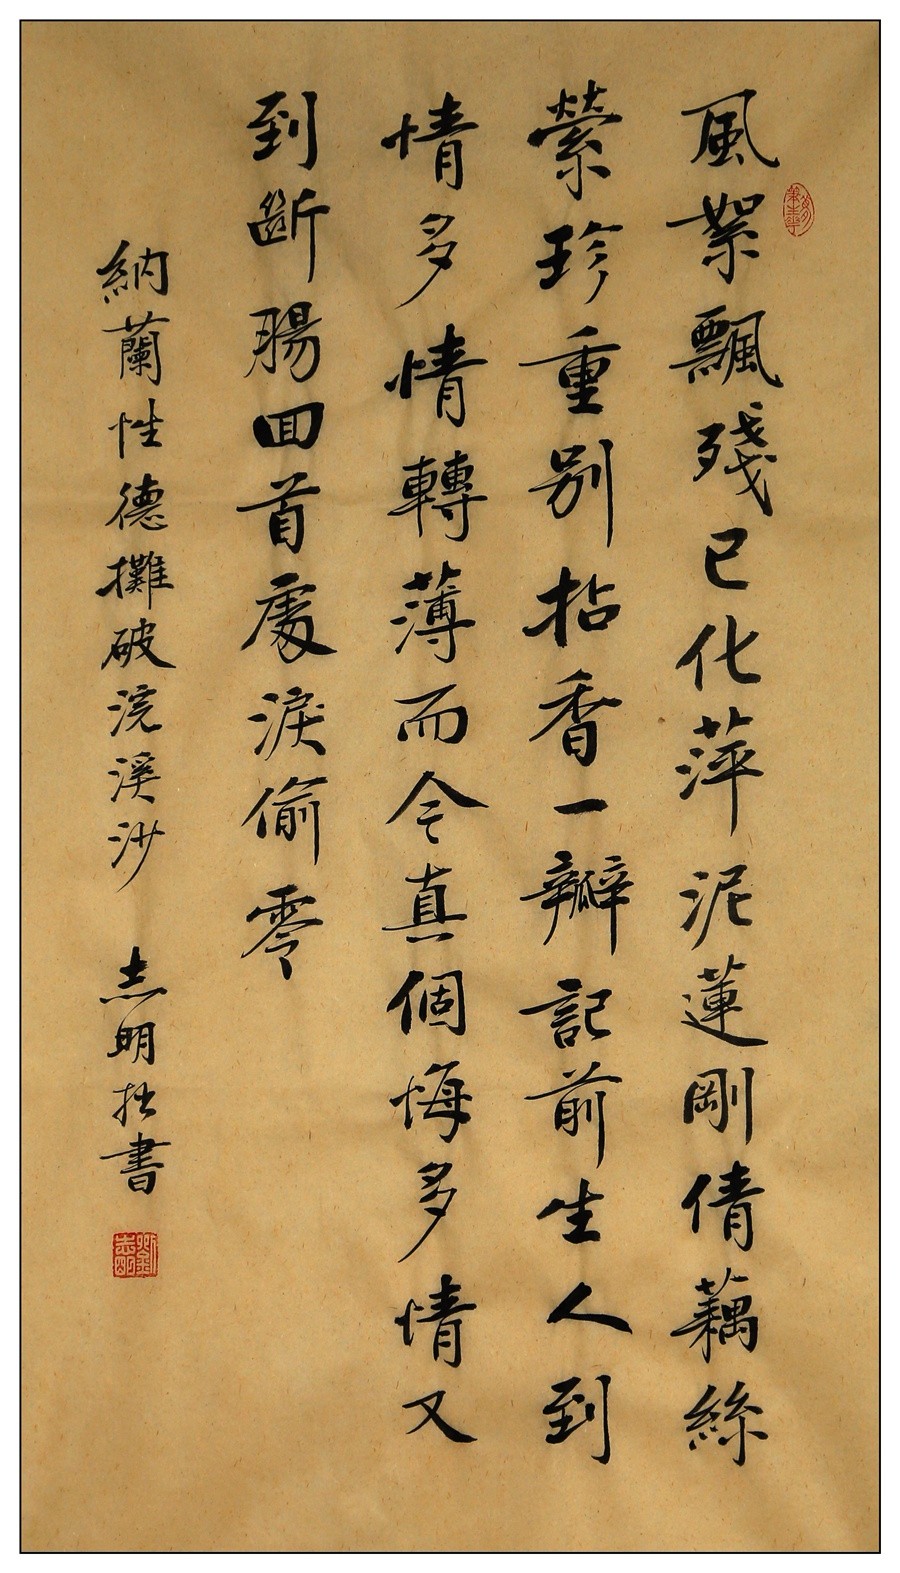 風絮飄殘已化萍泥蓮剛倩藕絲
縈珍重別拈香一瓣記前生人到
情多情轉薄而今真個悔多情又
到斷腸回首處淚偷零
納蘭性德攤破浣溪沙 志明拙書